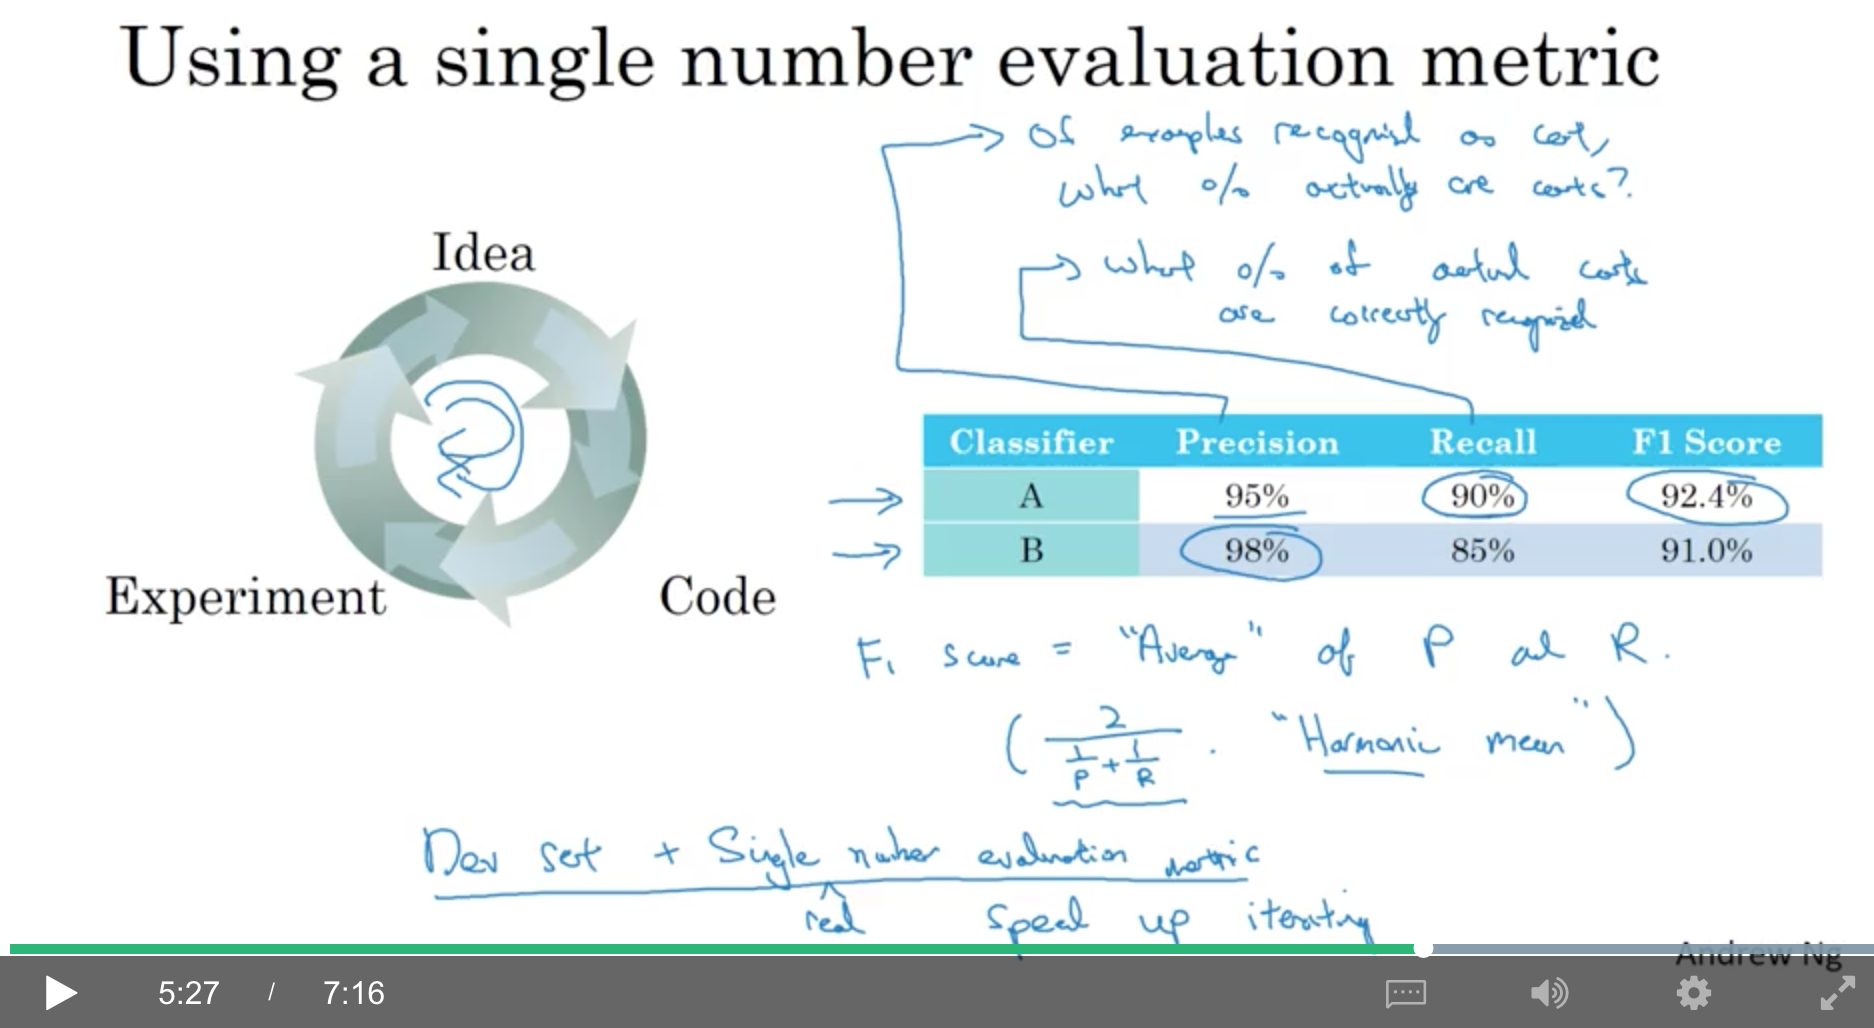 Using a single number evaluation metric
Of examples recognized as cat,
what % actually are cats?
what % of actual cats
are correctly recognized
Idea
Experiment
Code
Classifier Precision Recall F1 Score
A 95% 90% 92.4%
B 98% 85% 91.0%
F1 score = "Average" of P and R.
( 2 / (1/P + 1/R) . "Harmonic mean" )
Dev set + Single number evaluation metric
real speed up iterating
Andrew Ng
5:27 / 7:16